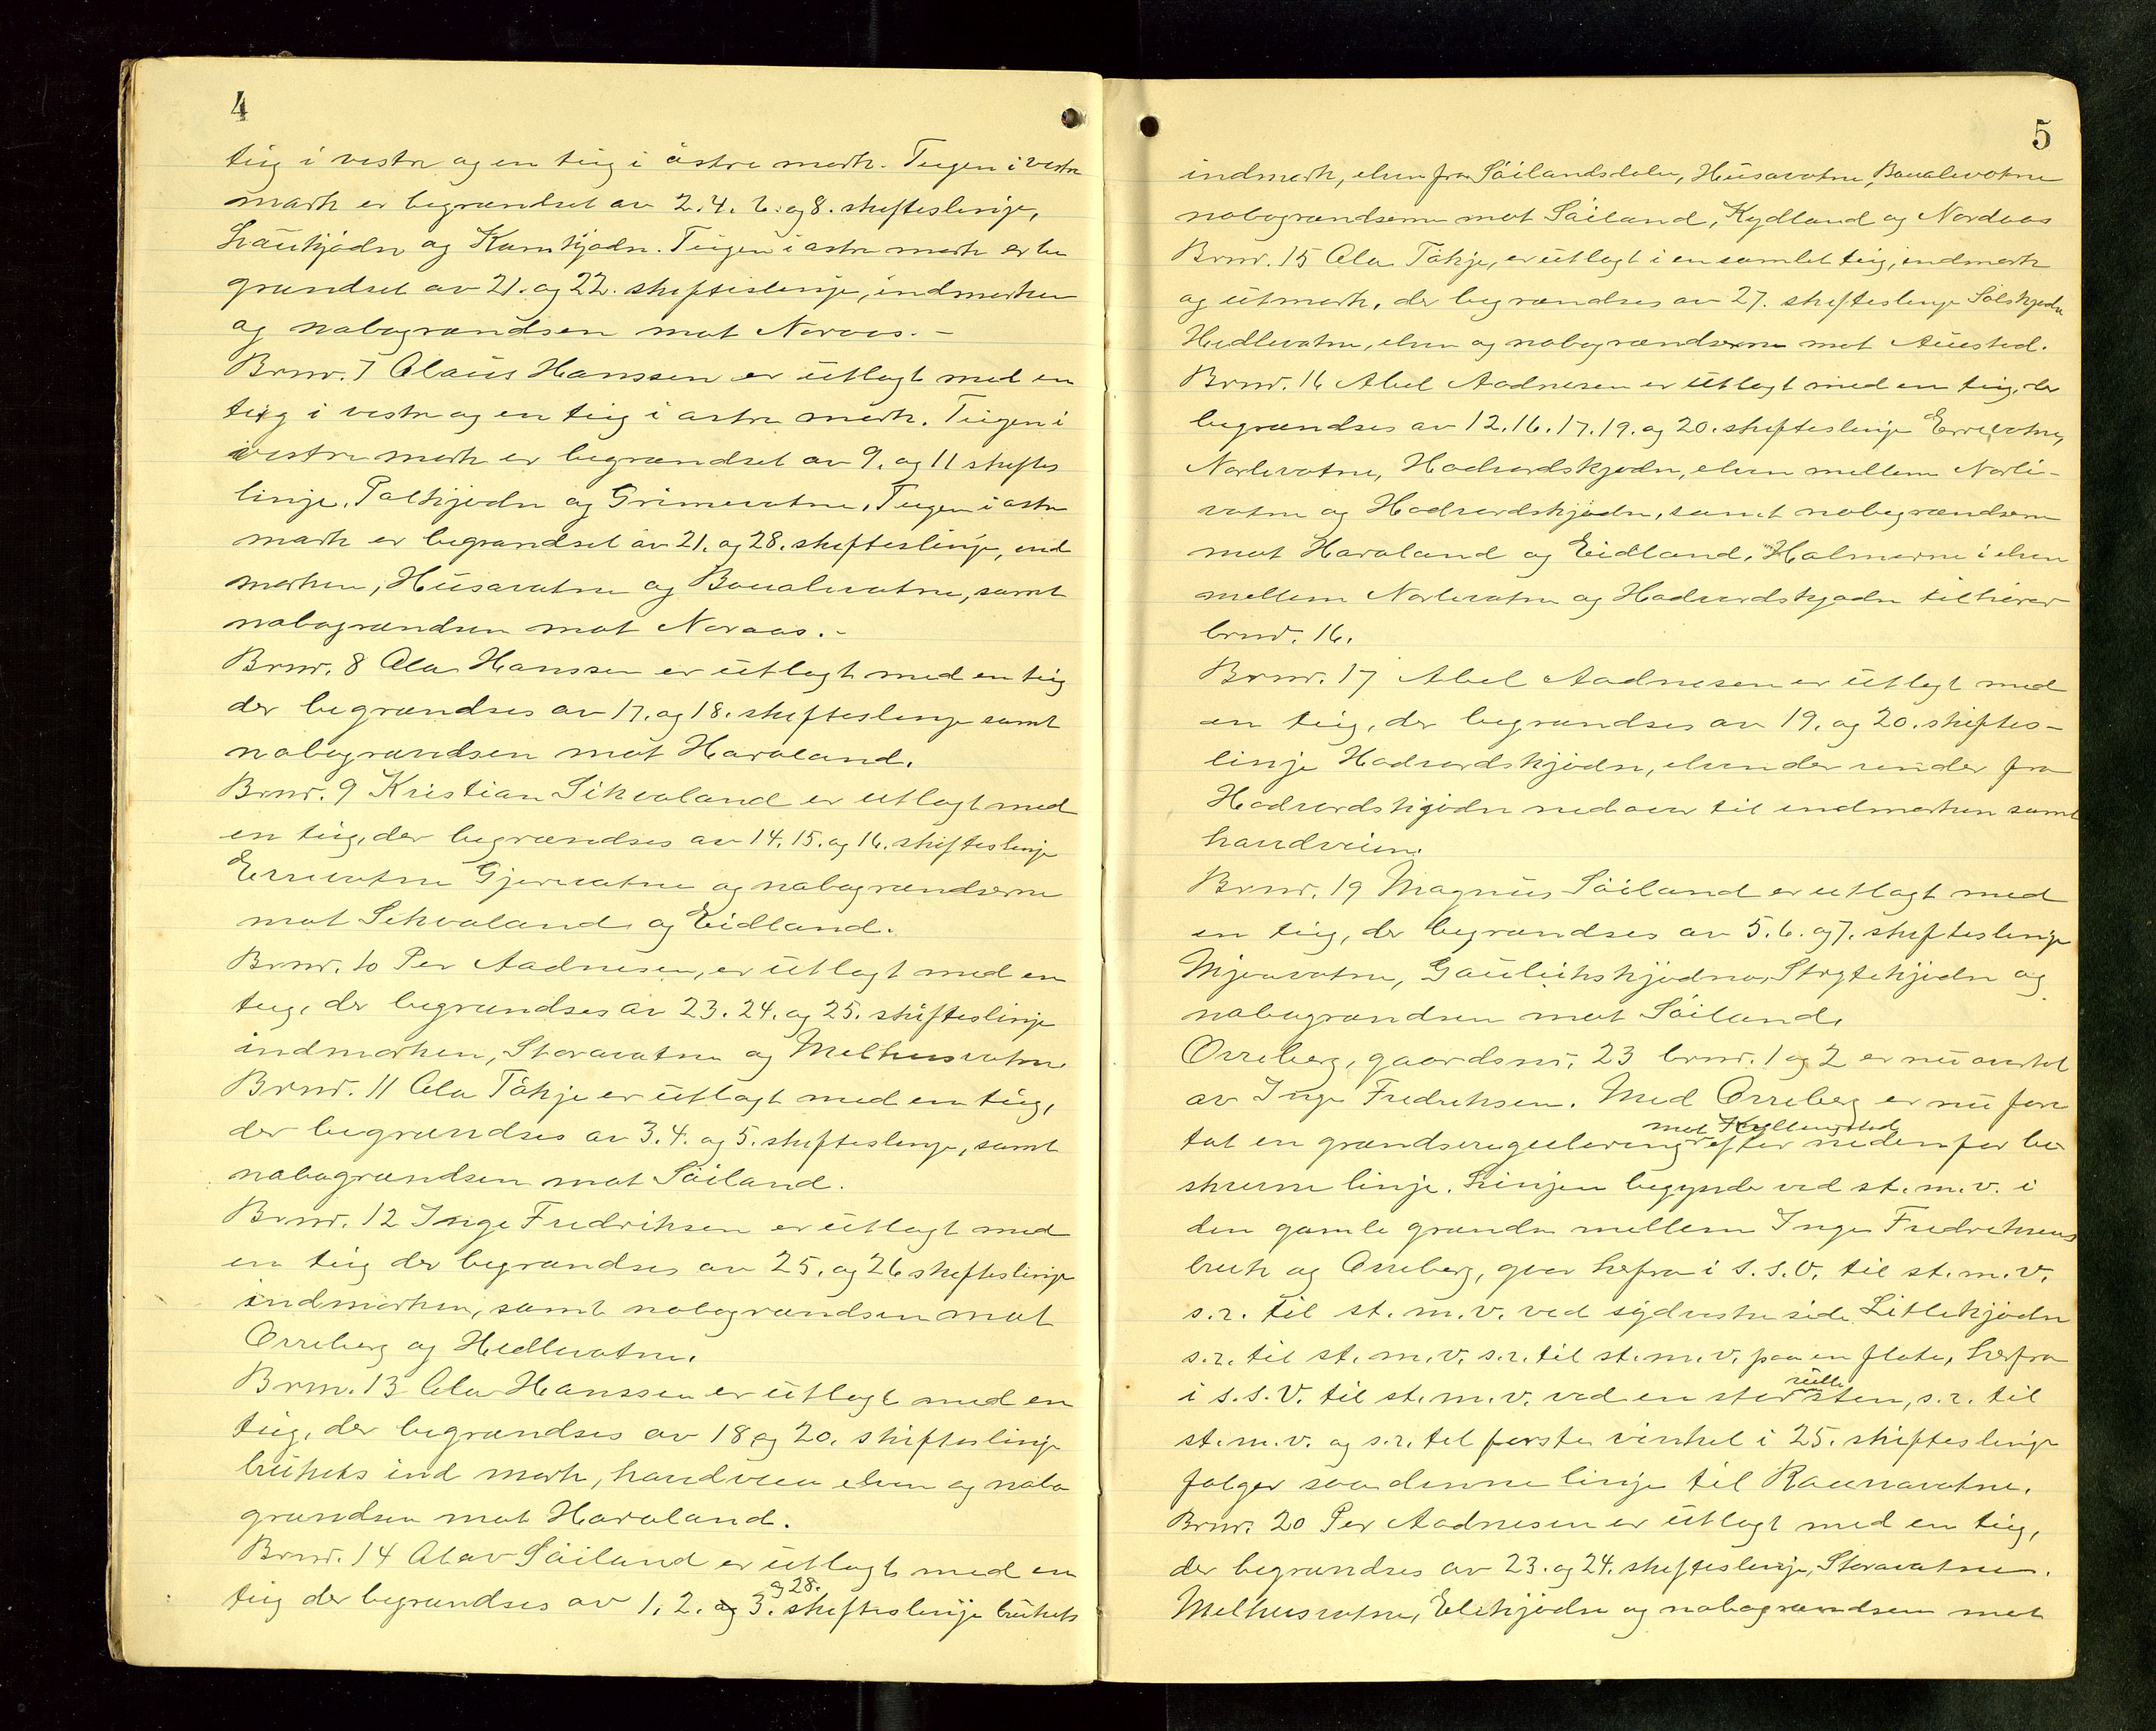 4
teig i vestre og en teig i østre mark. Teigen i vestre
mark er begrændset av 2. 4. 6. og 8. skifteslinje,
Laukjødn og Kamkjødn. Teigen i østre mark er be
grændset av 21. og 22. skifteslinje, indmarken
og nabogrændsen mot Noraas. -
Brnr. 7 Olaus Hanssen er utlagt med en
teig i vestre og en teig i østre mark. Teigen i
vestre mark er begrændset av 9. og 11 skiftes
linje, Palkjødn og Grimevatne, Teigen i østre
mark er begrændset av 21. og 28. skifteslinje, ind
marken, Husavatne og Boualevatne, samt
nabogrændsen mot Noraas. -
Brnr. 8 Ola Hanssen er utlagt med en teig
der begrændses av 17. og 18. skifteslinje samt
nabogrændsen mot Havaland.
Brnr. 9 Kristian Sikvaland er utlagt med
en teig, der begrændses av 14. 15. og 16. skifteslinje
Errevatne Gjerevatne og nabogrændserne
mot Sikvaland og Eidland.
Brnr. 10 Per Aadnesen, er utlagt med en
teig, der begrændses av 23. 24. og 25. skifteslinje
indmarken, Storavatne og Melhusvatne.
Brnr. 11 Ola Tökje er utlagt med en teig,
der begrændses av 3. 4. og 5. skifteslinje, samt
nabogrændsen mot Söiland.
Brnr. 12 Inge Fredriksen er utlagt med
en teig der begrændses av 25. og 26 skifteslinje
indmarken, samt nabogrændsen mot
Orreberg og Hedlevatne.
Brnr. 13 Ola Hanssen er utlagt med en
teig, der begrændses av 18 og 20. skifteslinje
brukets ind mark, handveien elven og nabo
grændsen mot Havaland.
Brnr. 14 Olav Söiland er utlagt med en
og 28.
teig der begrændses av 1. 2. og 3. skifteslinje brukets
5
indmark, elven fra Söilandsdalen, Husavatne, Boualevatne
nabogrændserne mot Söiland, Kydland og Nordaas
Brnr. 15 Ola Tökje, er utlagt i en samlet teig, indmark
og utmark, der begrændses av 27. skifteslinje Solskjødn
Hedlevatne, elven og nabogrændserne mot Austad.
Brnr. 16 Abel Aadnesen er utlagt med en teig, der
begrændses av 12. 16. 17. 19. og 20. skifteslinje Errevatne,
Norlevatne, Hadvardskjødn, elven mellem Norle-
vatne og Hadvardskjødn, samt nabogrændsene
mot Havaland og Eidland. Holmerne i elven
mellem Norlevatne og Hadvardskjødn tilhører
brnr. 16.
Brnr. 17 Abel Aadnesen er utlagt med
en teig, der begrændses av 19. og 20. skiftes-
linje Hadvardskjødn, elven der render fra
Hadvardskjødn nedover til indmarken samt
handveien.
Brnr. 19 Magnus Söiland er utlagt med
en teig, der begrændses av 5. 6. og 7. skifteslinje
Mjovatne, Gaulikskjødno, Strytekjødn og
nabogrændsen mot Söiland.
Orreberg, gaardsnr. 23 brnr. 1 og 2 er nu overtat
av Inge Fredriksen. Med Orreberg er nu fore
mot Kyllingstad
tat en grændseregulering efter nedenfor be
skrevne linje. Linjen begynder ved st. m. v. i
den gamle grændse mellem Inge Fredriksens
bruk og Orreberg, gaar herfra i S. S. O. til st. m. v.
s. r. til st. m. v. ved sydvestre side Litlekjødn
s. r. til st. m. v. s. r. til st. m. v. paa en flate, herfra
rulle
i S. S. V. til st. m. v. ved en stor sten, s. r. til
st. m. v. og s. r. til første vinkel i 25. skifteslinje
følger saa denne linje til Raunavatne.
Brnr. 20 Per Aadnesen er utlagt med en teig,
der begrændses av 23. og 24. skifteslinje, Storavatne.
Melhusvatne, Elekjødn og nabogrændsen mot